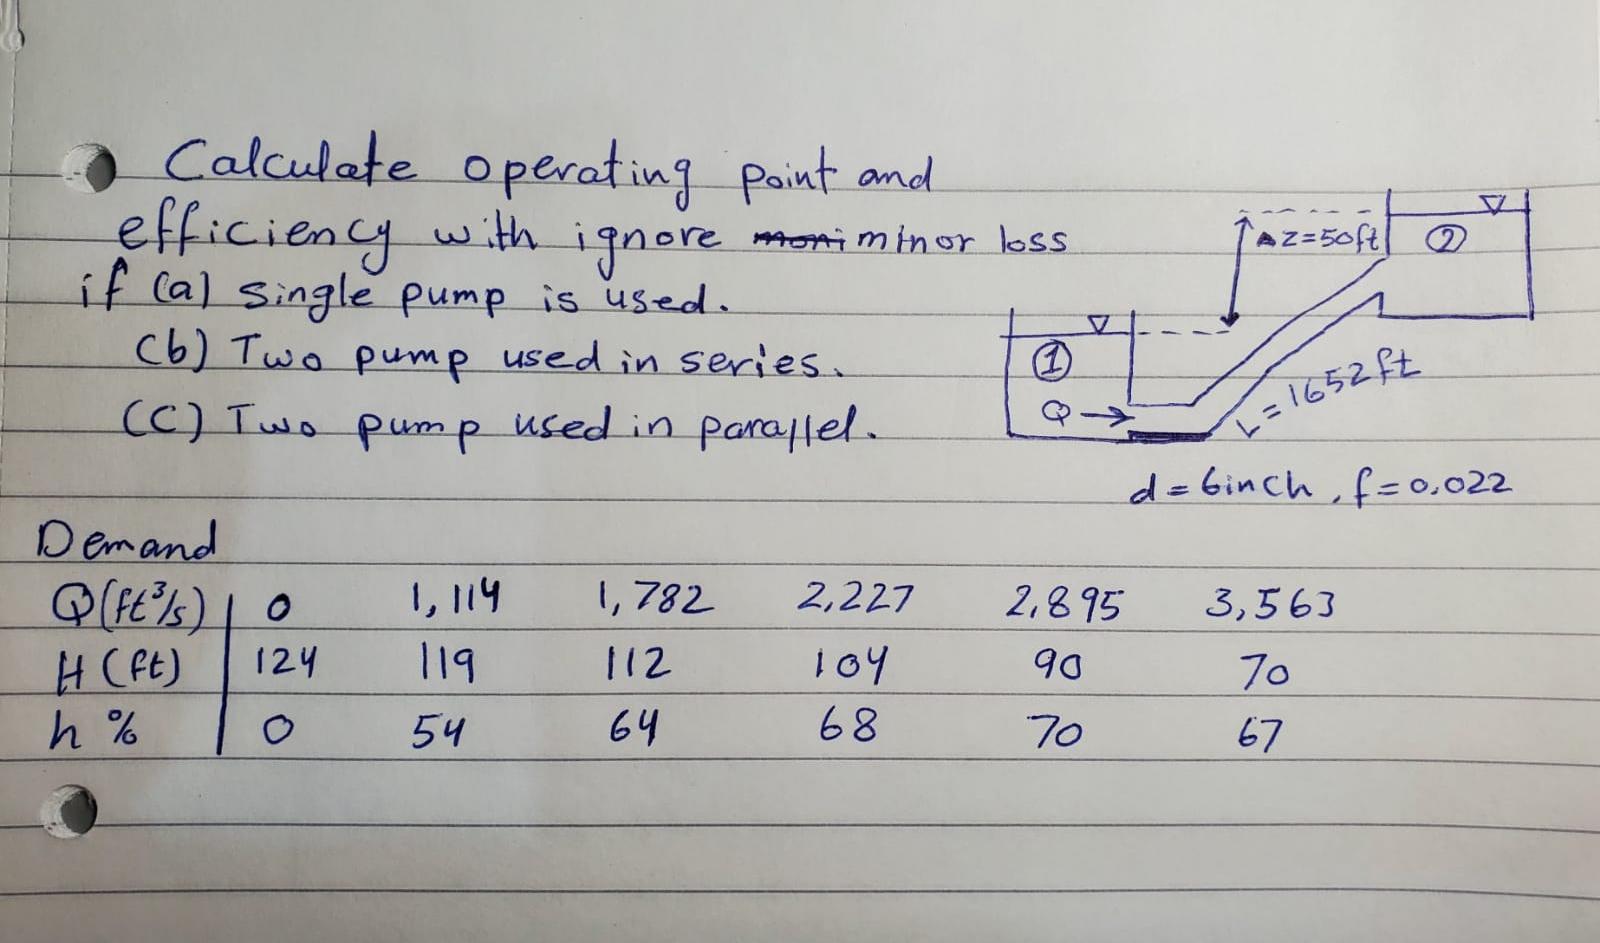 Calculate operating point and
efficiency with ignore minor loss
if (a) single pump is used.
(b) Two pump used in series.
(C) Two pump used in parallel.
ΔZ=50ft
②
①
Q→
L=1652ft
d=6inch, f=0.022
Demand
Q(ft³/s) 0 1,114 1,782 2,227 2,895 3,563
H (ft) 124 119 112 104 90 70
h % 0 54 64 68 70 67